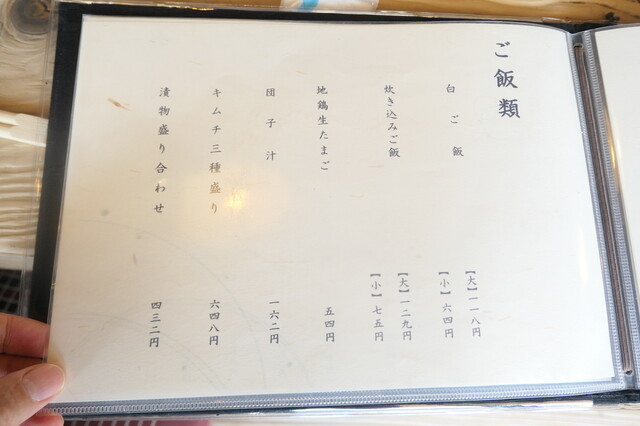 ご飯類
白ご飯
【大】一一八円
【小】六四円
炊き込みご飯
【大】一二九円
【小】七五円
地鶏生たまご
五四円
団子汁
一六二円
キムチ三種盛り
六四八円
漬物盛り合わせ
四三二円